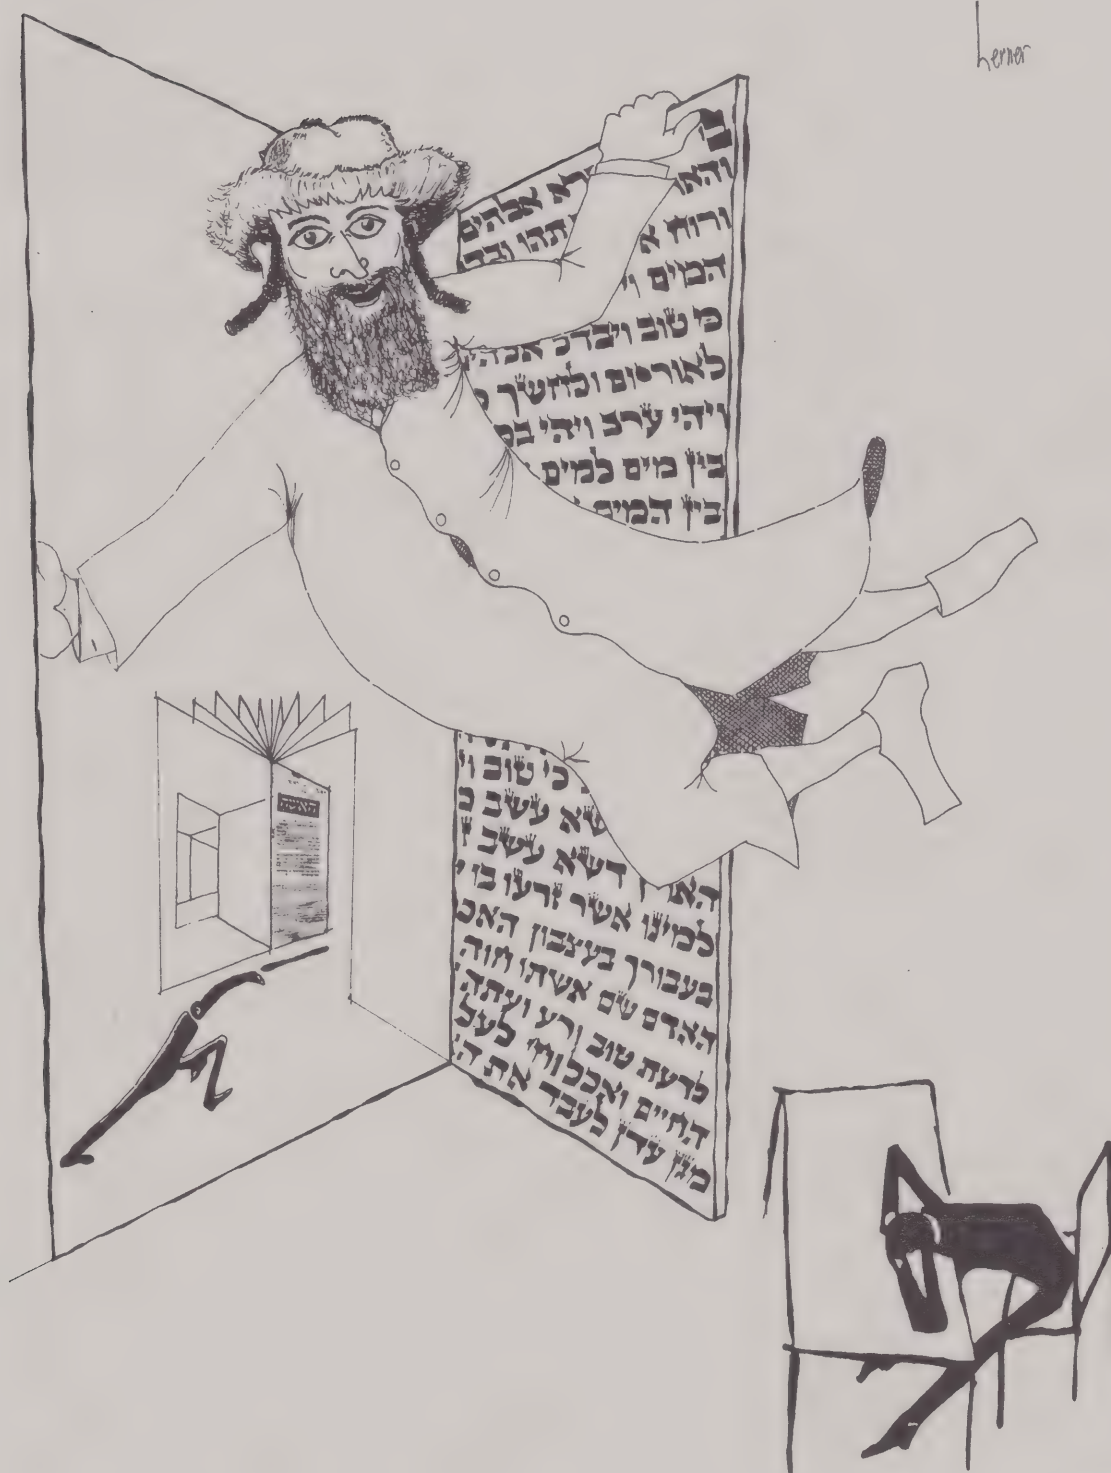 Lerner
ב רא אלהים
והאר תהו ובה
ורוח א
המים וי
כי טוב ויבדל אלהי
לאור יום ולחשך ל
ויהי ערב ויהי בק
בין מים למים
בין המים
כי טוב וי
שא עשב
האר ץ דשא עשב ז
למינו אשר זרעו בו
בעבורך בעצבון תאכ
האדם שם אשתו חוה
לדעת טוב ורע ועתה
החיים ואכל וחי לעל
מגן עדן לעבד את ה
האשה